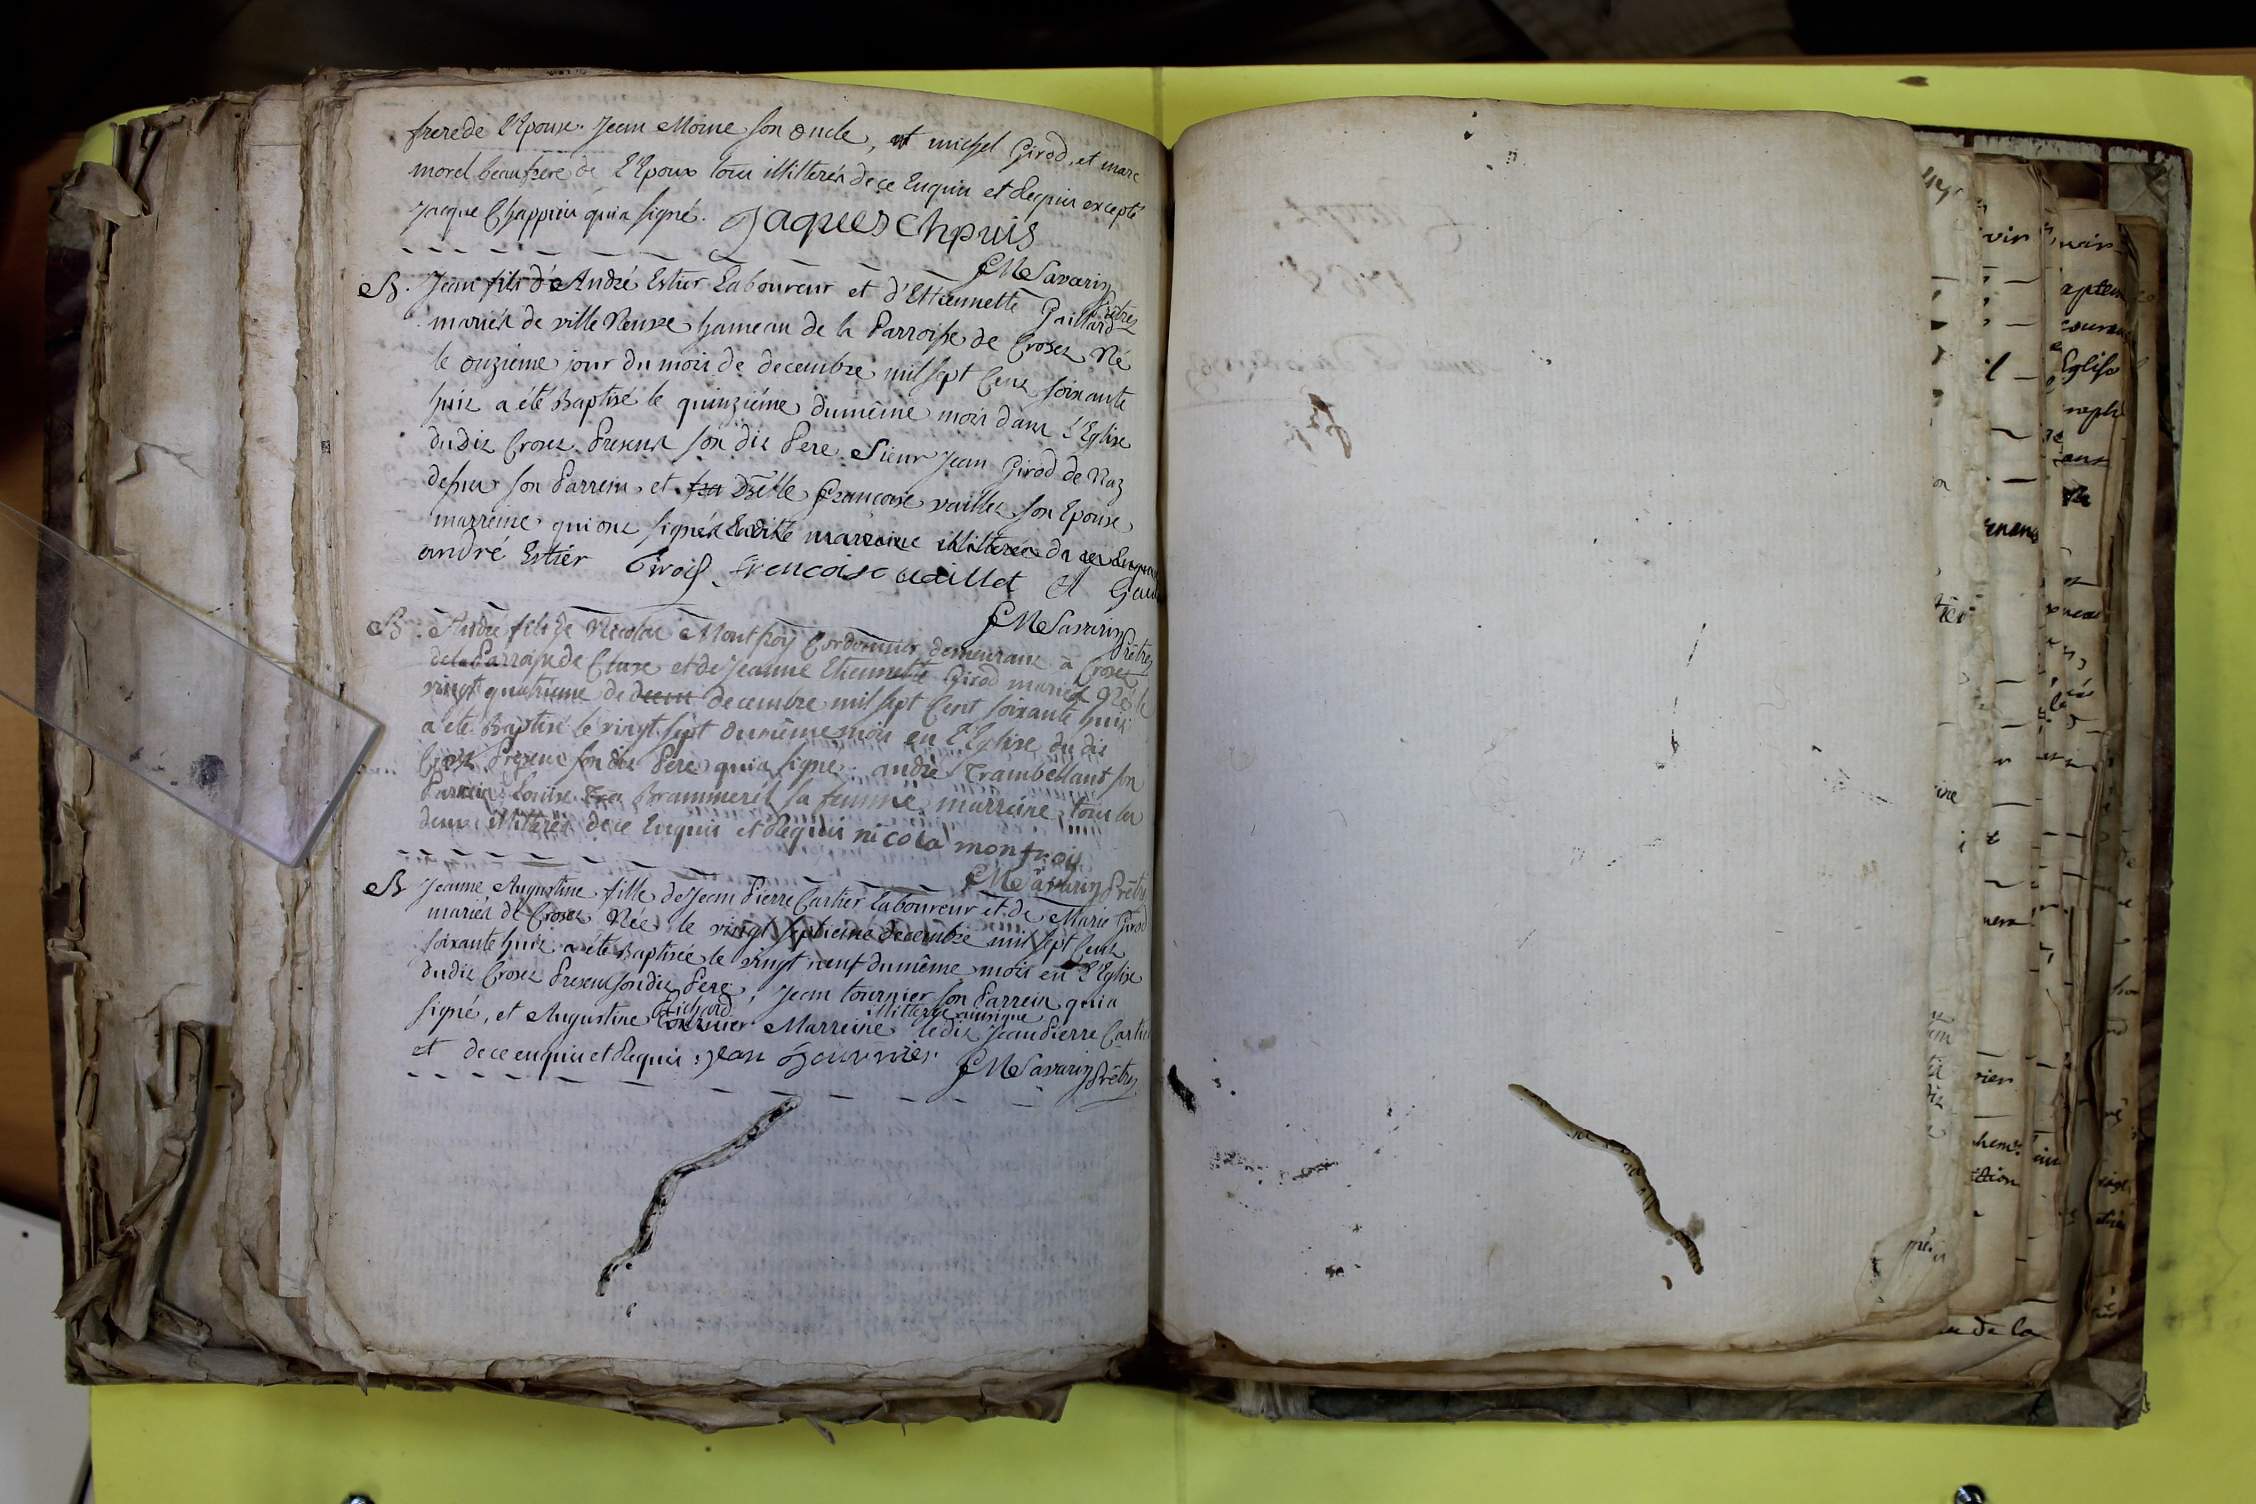 frere de l'Epouse. Jean Moine son oncle, et michel Girod, et marc
morel beaufrere de l'Epoux tous illiterés de ce Enquis et Requis excepté
Jacque Chappuis qui a signé. Jaques Chpuis
JMSavarin Prêtre
B. Jean fils d'André Estier Laboureur et d'Ettiennette Gaillard
mariés de ville Neuve hameau de la Parroisse de Crozet Né
le onzieme jour du mois de decembre mil sept Cent soixante
huit a été Baptisé le quinziéme du même mois dans l'Eglise
du dit Crozet. Present son dit Pere. Sieur Jean Girod de Naz
dessus son Parrein, et Dselle Françoise vaillet son Epouse
marreine qui ont signés Ladite marreine illiterée de ce Enquis
andré Estier Girod françoise vaillet
JMSavarin Prêtre
B. André fils de Nicolas Montfroy Cordonnier demeurant à Crozet
de la Parroisse de Cluse et de Jeanne Etiennette Girod mariés Né le
vingt quatrieme de decembre mil sept Cent soixante huit
a été Baptisé le vingt sept du même mois en l'Eglise du dit
Crozet Present son dit Pere qui a signé. andré Trambellant son
Parrein Louise Brammerel sa femme marreine tous les
deux illiterés de ce Enquis et Requis nicola monfroy
JMSavarin Prêtre
B Jeanne Augustine fille de Jean Pierre Cartier Laboureur et de Marie Girod
mariés de Crozet Née le vingt septieme decembre mil sept Cent
soixante huit a été Baptisée le vingt neuf du même mois en l'Eglise
du dit Crozet Present son dit Pere, Jean tournier son Parrein qui a
signé, et Augustine Richard Marreine illiterée ainsi que le dit Jean Pierre Cartier
et de ce enquis et Requis: Jean Tournier JMSavarin Prêtre